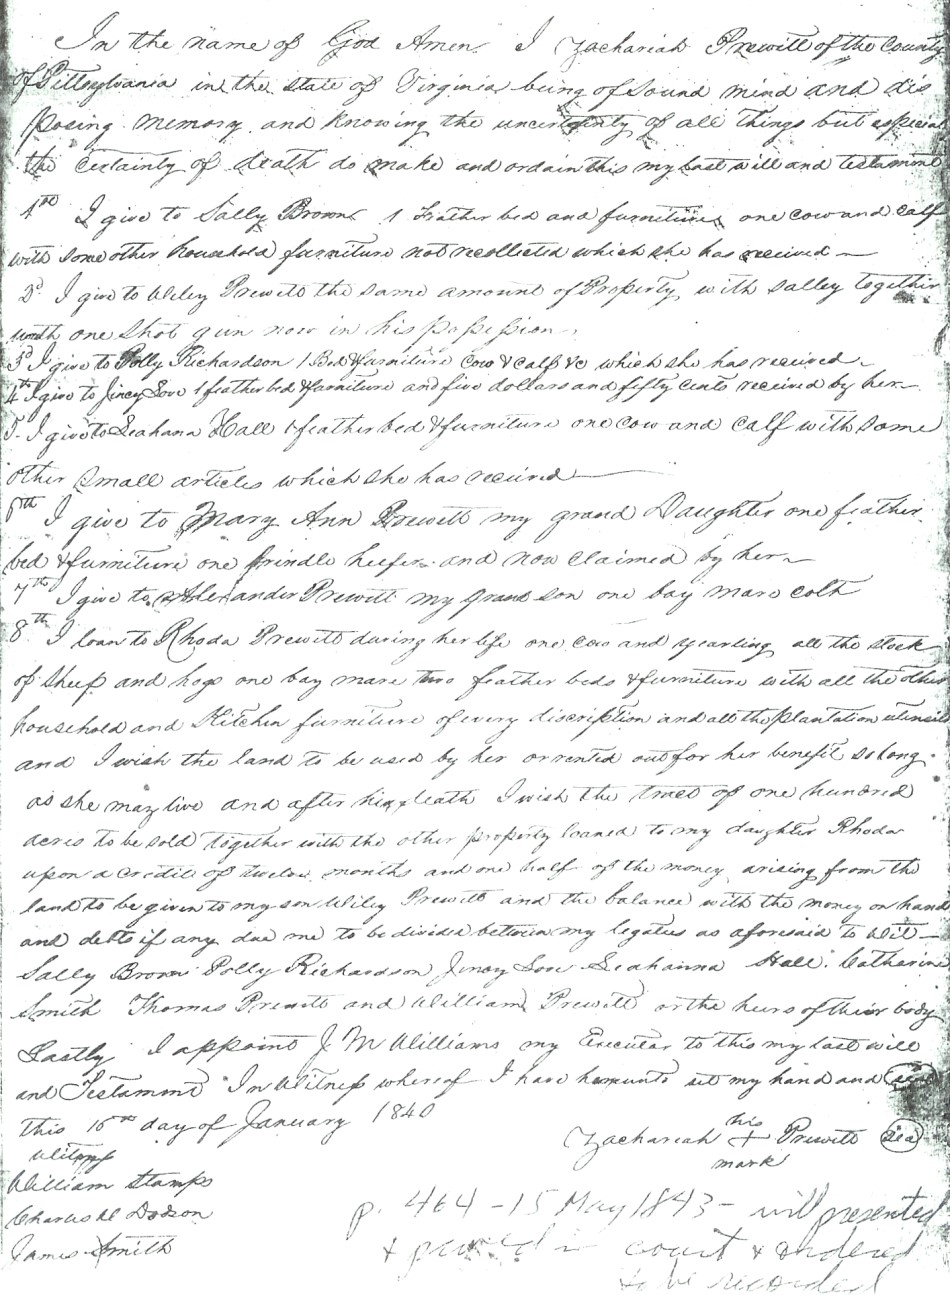 In the name of God Amen. I Zachariah Prewitt of the County
of Pittsylvania in the state of Virginia being of Sound mind and dis
posing memory and knowing the uncertainty of all things but especial
the certainty of death do make and ordain this my last will and testament
1st I give to Sally Brown 1 Feather bed and furniture one cow and calf
with some other household furniture not recollected which she has received
2d I give to Wiley Prewitt the same amount of Property with Salley together
with one Shot gun now in his possession.
3d I give to Polly Richardson 1 Bed & furniture cow & calf &c which she has received
4th I give to Jincy 1 feather bed & furniture and five dollars and fifty cents received by her
5. I give to Seahana Hall 1 feather bed & furniture one cow and calf with some
other small articles which she has received
6th I give to Mary Ann Prewitt my grand Daughter one feather
bed & furniture one brindle heefer and now claimed by her
7th I give to Alexander Prewitt my grand son one bay mare colt
8th I loan to Rhoda Prewitt during her life one cow and yearling all the stock
of Sheep and hogs one bay mare two feather beds & furniture with all the other
household and Kitchin furniture of every discription and all the plantation utensils
and I wish the land to be used by her or rented out for her benefit so long
as she may live and after her death I wish the tract of one hundred
acres to be sold together with the other property loaned to my daughter Rhoda
upon a credit of twelve months and one half of the money arising from the
land to be given to my son Wiley Prewitt and the balance with the money on hand
and debts if any due me to be divided between my legatus as aforesaid to Wit
Sally Brown Polly Richardson Jincy Seahanna Hall. Catharine
Smith Thomas Prewitt and William Prewitt or the heirs of their body
Lastly I appoint J M Williams my Executor to this my last will
and Testament In Witness whereof I have hereunto set my hand and seal
this 16th day of January 1840
his
Zachariah + Prewitt seal
mark
Witness
William Stamps
Charles W Dodson
James Smith
p. 464 - 15 May 1843 - will presented
& proved in court & ordered
to be recorded